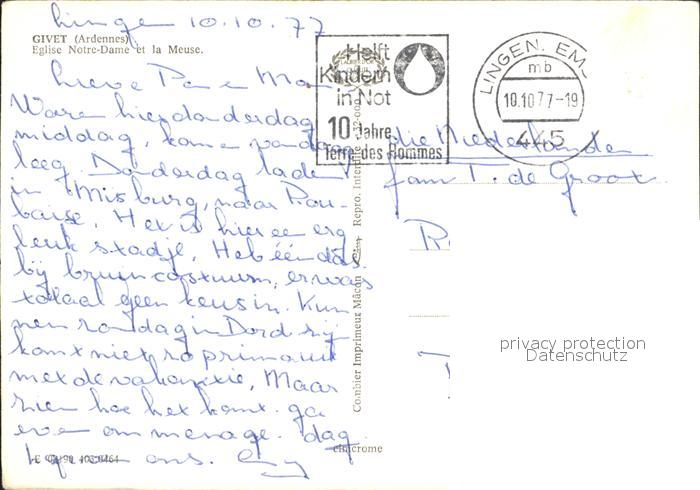 Lingen 10.10.77
GIVET (Ardennes)
Eglise Notre-Dame et la Meuse.
Lieve Pa en Ma
Waren hier donderdag
middag, komen vandaag
leeg. Donderdag laden
in Misburg, naar Rou-
baise. Het is hier een erg
leuk stadje. Heb één das
bij bruin costuum, er was
totaal geen keus in. Kun
nen zondag in Dord zijn
komt niet zo prima uit
met de vakantie, Maar
zien hoe het komt. ga
even om menage. dag
ons.
Helft
Kindern
in Not
10 Jahre
Terre des Hommes
LINGEN, EMS
mb
10.10.77-19
445
die Niederlanden
fam T. de Groot
Combier Imprimeur Mâcon
Repro. Interdite
cimcrome
privacy protection
Datenschutz